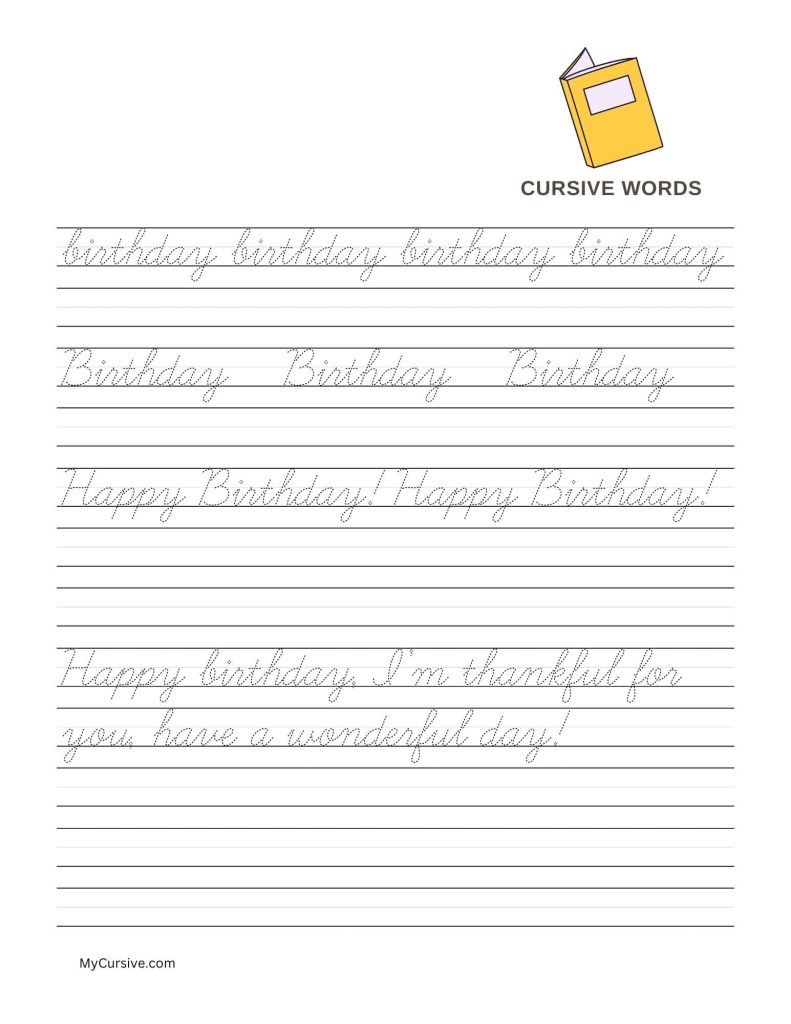 CURSIVE WORDS
birthday birthday birthday birthday
Birthday Birthday Birthday
Happy Birthday! Happy Birthday!
Happy birthday, I'm thankful for
you, have a wonderful day!
MyCursive.com